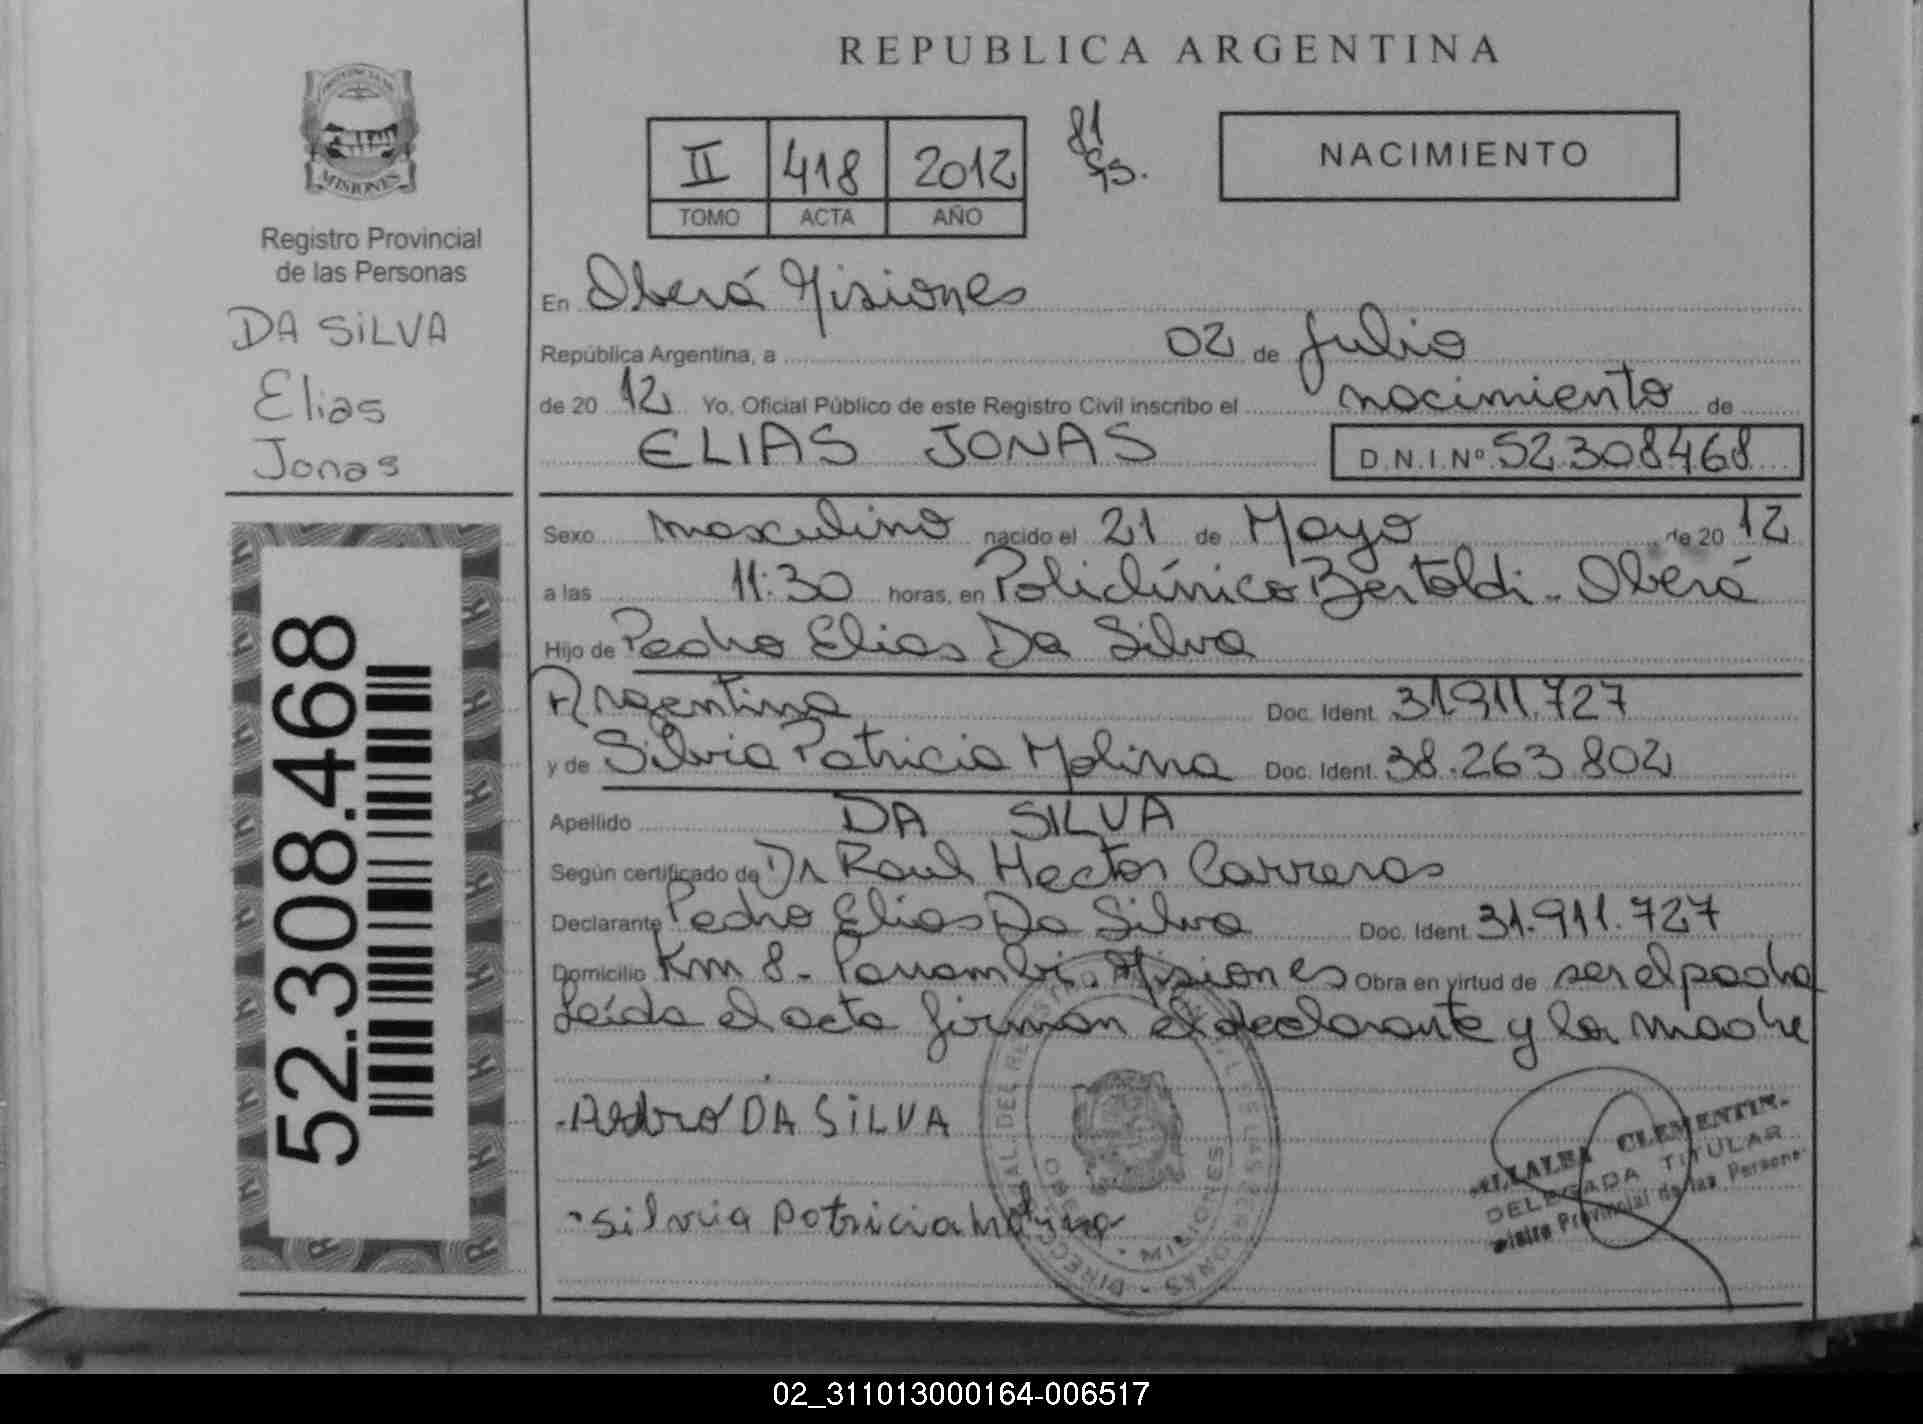 REPUBLICA ARGENTINA
PROVINCIA DE
MISIONES
Registro Provincial
de las Personas
DA SILVA
Elias
Jonas
52.308.468
II 418 2012
TOMO ACTA AÑO
81
NACIMIENTO
En Oberá Misiones
República Argentina, a 02 de Julio
de 20 12 Yo, Oficial Público de este Registro Civil inscribo el nacimiento de
ELIAS JONAS D.N.I.Nº 52.308.468
Sexo masculino nacido el 21 de Mayo de 20 12
a las 11:30 horas, en Policlínico Bertoldi - Oberá
Hijo de Pedro Elias Da Silva
Argentina Doc. Ident. 31.911.727
y de Silvia Patricia Molina Doc. Ident. 38.263.802
Apellido DA SILVA
Según certificado de Dr Raul Hector Carreras
Declarante Pedro Elias Da Silva Doc. Ident. 31.911.727
Domicilio Km 8 - Panambi. Misiones Obra en virtud de ser el padre
Leída el acta firman el declarante y la madre
Pedro DA SILVA
Silvia Patricia Molina
MISIONES
CLEMENTIN
DELEGADA TITULAR
Provincial de las Persona
02_311013000164-006517